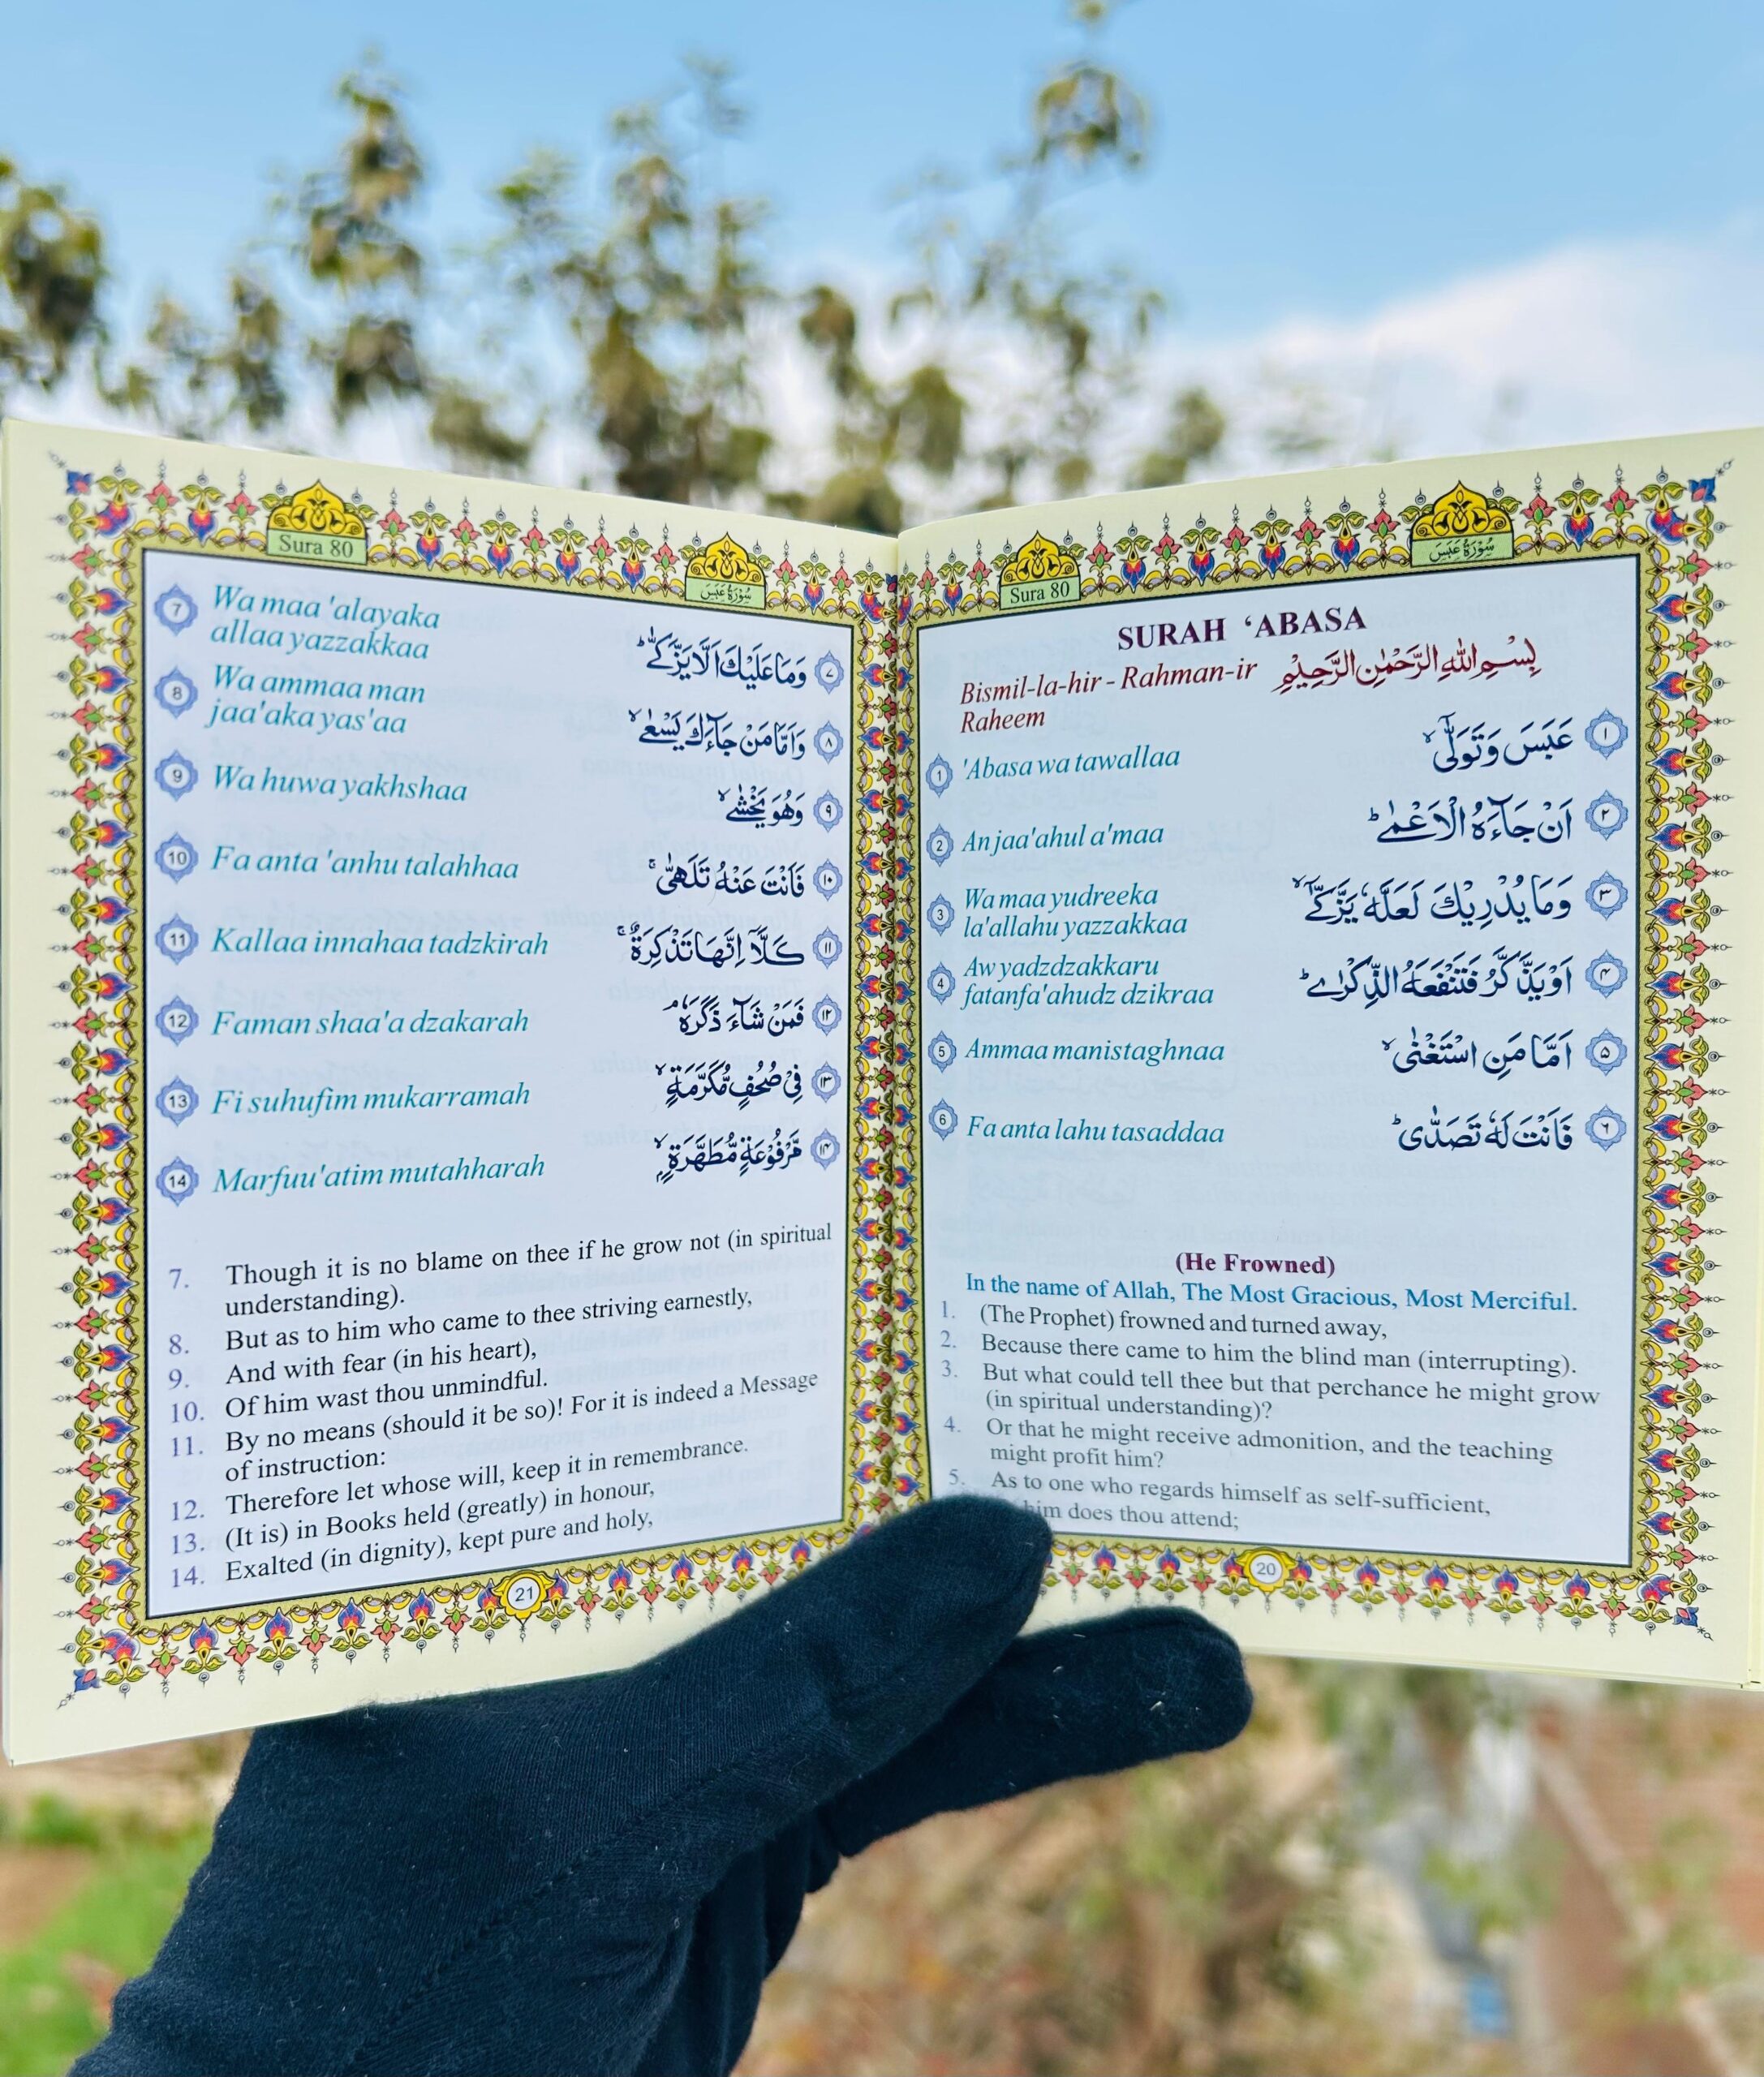 Sura 80
سُوْرَةُ عَبَسَ
SURAH ‘ABASA
Bismil-la-hir - Rahman-ir
Raheem
بِسْمِ اللهِ الرَّحْمٰنِ الرَّحِيْمِ
1 'Abasa wa tawallaa
عَبَسَ وَتَوَلّٰىۤ ۙ ١
2 An jaa'ahul a'maa
اَنْ جَآءَهُ الْاَعْمٰى ؕ ٢
3 Wa maa yudreeka
la'allahu yazzakkaa
وَمَا يُدْرِيْكَ لَعَلَّهٗ يَزَّكّٰىۤ ۙ ٣
4 Aw yadzdzakkaru
fatanfa'ahudz dzikraa
اَوْ يَذَّكَّرُ فَتَنْفَعَهُ الذِّكْرٰى ؕ ۴
5 Ammaa manistaghnaa
اَمَّا مَنِ اسْتَغْنٰى ۙ ۵
6 Fa anta lahu tasaddaa
فَاَنْتَ لَهٗ تَصَدّٰى ؕ ٦
(He Frowned)
In the name of Allah, The Most Gracious, Most Merciful.
1. (The Prophet) frowned and turned away,
2. Because there came to him the blind man (interrupting).
3. But what could tell thee but that perchance he might grow
(in spiritual understanding)?
4. Or that he might receive admonition, and the teaching
might profit him?
5. As to one who regards himself as self-sufficient,
him does thou attend;
20
Sura 80
سُوْرَةُ عَبَسَ
7 Wa maa 'alayaka
allaa yazzakkaa
وَمَا عَلَيْكَ اَلَّا يَزَّكّٰى ؕ ٧
8 Wa ammaa man
jaa'aka yas'aa
وَاَمَّا مَنْ جَآءَكَ يَسْعٰى ۙ ٨
9 Wa huwa yakhshaa
وَهُوَ يَخْشٰى ۙ ٩
10 Fa anta 'anhu talahhaa
فَاَنْتَ عَنْهُ تَلَهّٰى ۚ ١٠
11 Kallaa innahaa tadzkirah
كَلَّاۤ اِنَّهَا تَذْكِرَةٌ ۚ ١١
12 Faman shaa'a dzakarah
فَمَنْ شَآءَ ذَكَرَهٗ ۘ ١٢
13 Fi suhufim mukarramah
فِيْ صُحُفٍ مُّكَرَّمَةٍ ۙ ١٣
14 Marfuu'atim mutahharah
مَّرْفُوْعَةٍ مُّطَهَّرَةٍ ۙ ١۴
7. Though it is no blame on thee if he grow not (in spiritual
understanding).
8. But as to him who came to thee striving earnestly,
9. And with fear (in his heart),
10. Of him wast thou unmindful.
11. By no means (should it be so)! For it is indeed a Message
of instruction:
12. Therefore let whose will, keep it in remembrance.
13. (It is) in Books held (greatly) in honour,
14. Exalted (in dignity), kept pure and holy,
21